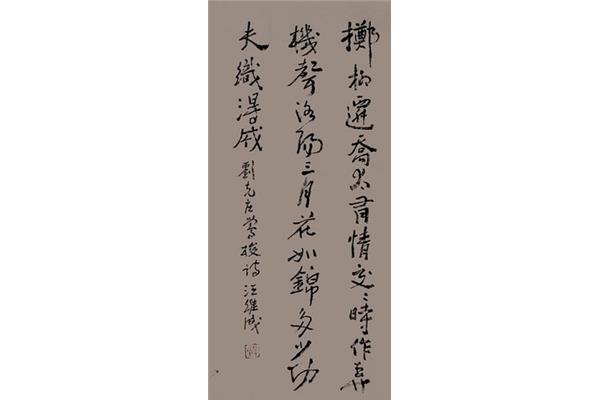 擲柳遷喬太有情交〻時作弄
機聲洛陽三月花如錦多少功
夫織得成 劉克庄鶯梭詩 汪維